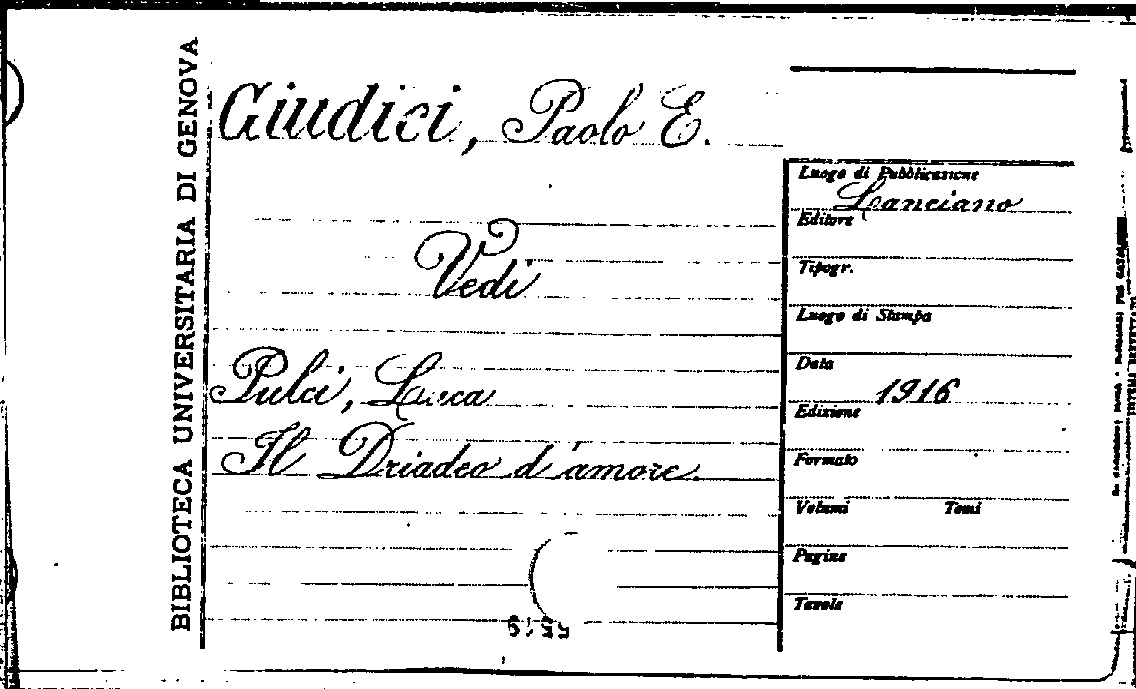 BIBLIOTECA UNIVERSITARIA DI GENOVA
Giudici, Paolo E.
Vedi
Pulci, Luca
Il Driadeo d'amore.
Luogo di Pubblicazione
Lanciano
Editore
Tipogr.
Luogo di Stampa
Data
1916
Edizione
Formato
Volumi Tomi
Pagine
Tavole